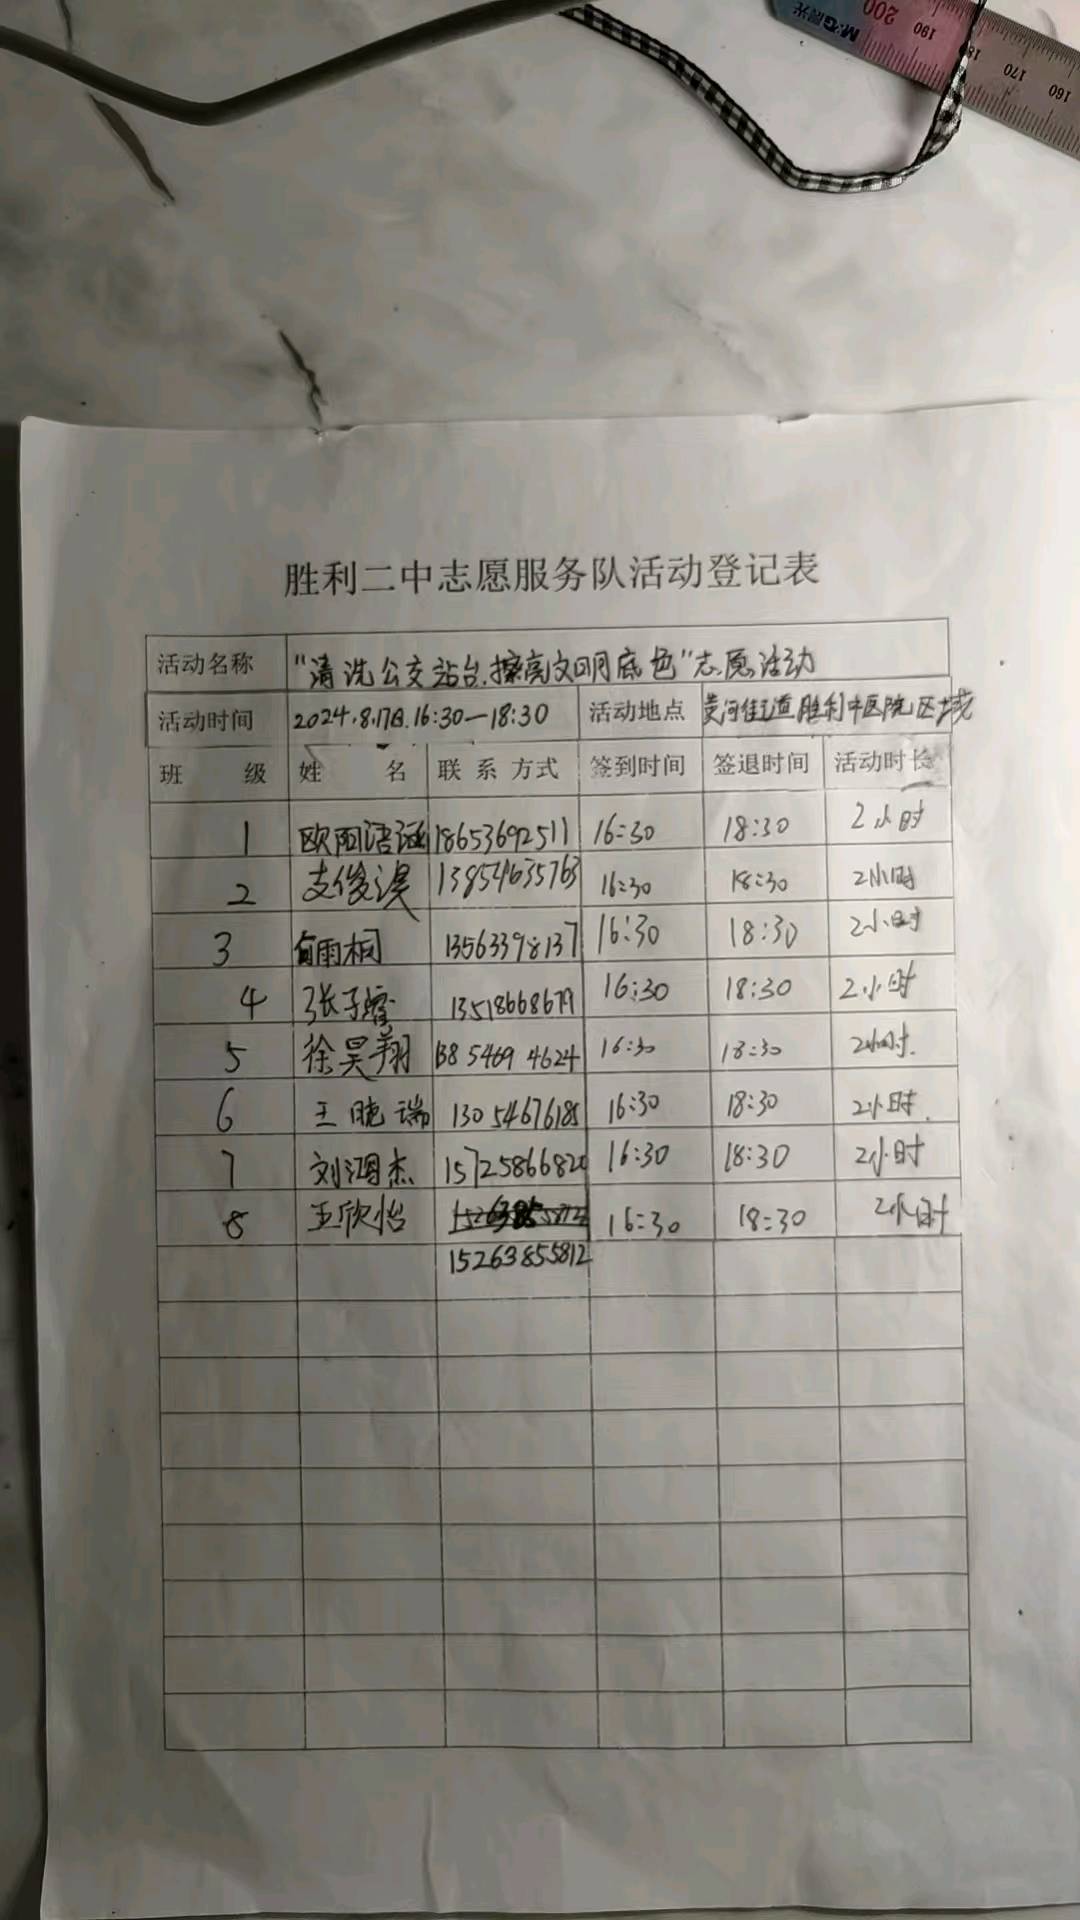 M&G晨光 200 190 180 170 160
胜利二中志愿服务队活动登记表
活动名称 "清洗公交站台.擦亮文明底色"志愿活动
活动时间 2024.8.17日.16:30—18:30 活动地点 黄河街道胜利中医院区域
班 级 姓 名 联系方式 签到时间 签退时间 活动时长
1 欧阳语涵 18653692511 16:30 18:30 2小时
2 支俊淏 13854635763 16:30 18:30 2小时
3 雨桐 13563398137 16:30 18:30 2小时
4 张子睿 13518668679 16:30 18:30 2小时
5 徐昊翔 138 5469 4624 16:30 18:30 2小时.
6 王晓瑞 13054676185 16:30 18:30 2小时.
7 刘鸿杰 15725866820 16:30 18:30 2小时
8 王欣怡 16:30 18:30 2小时
15263855812